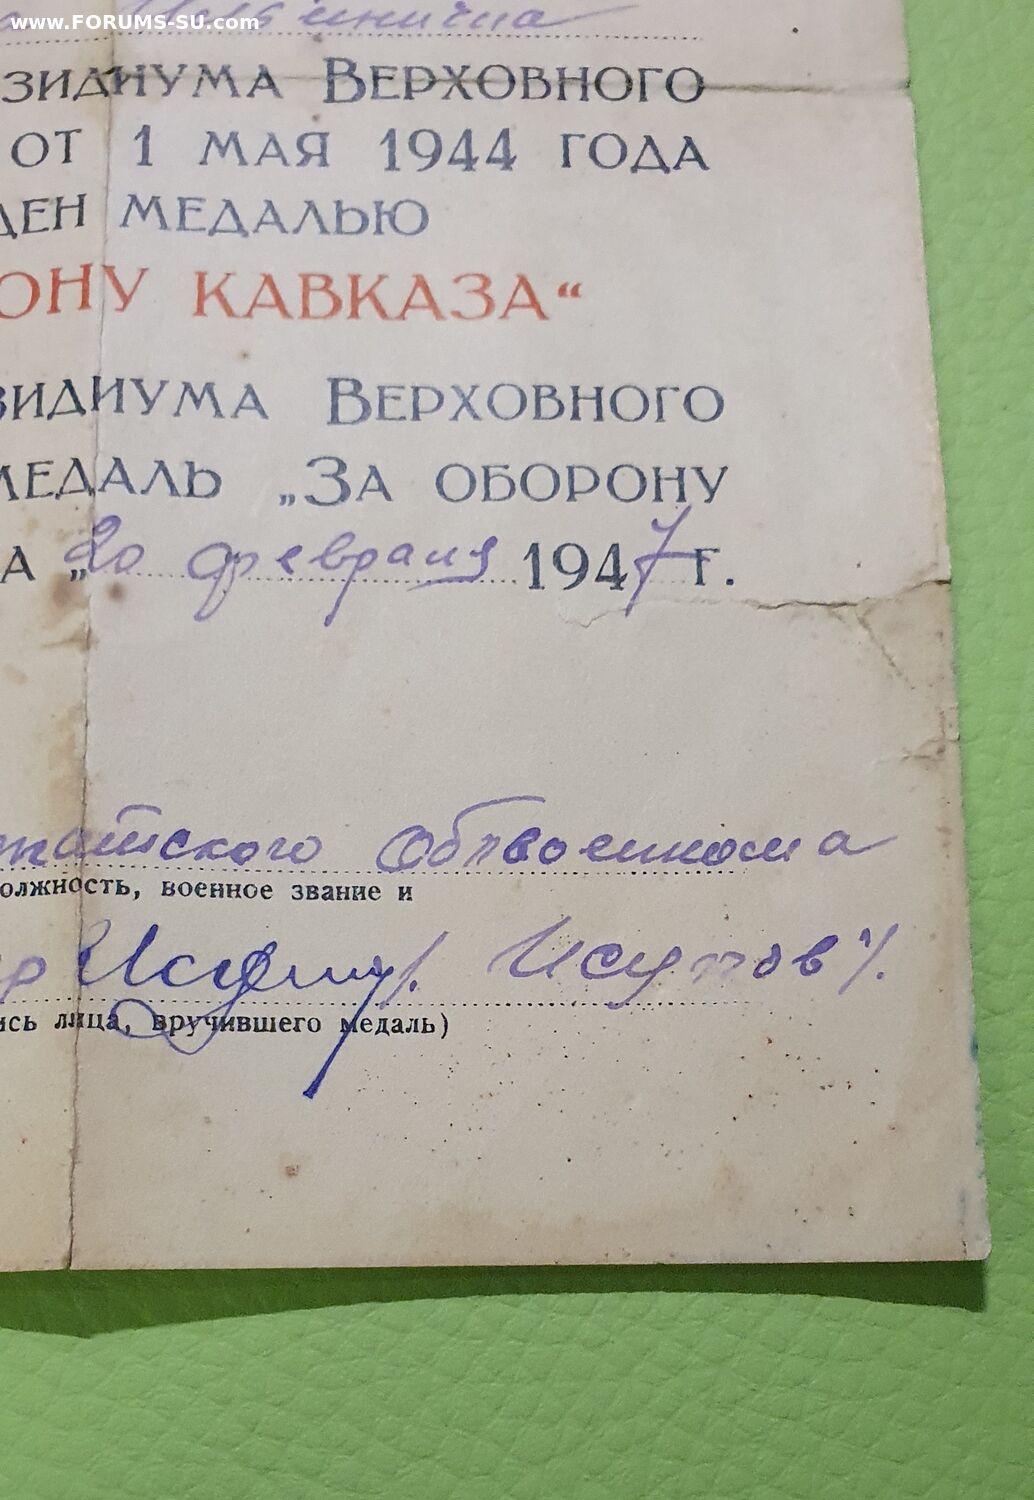 www.FORUMS-SU.com Ильинична
ЗИДИУМА ВЕРХОВНОГО
ОТ 1 МАЯ 1944 ГОДА
ДЕН МЕДАЛЬЮ
ОНУ КАВКАЗА“
ЗИДИУМА ВЕРХОВНОГО
МЕДАЛЬ „ЗА ОБОРОНУ
А „20 февраля 1947 г.
Облвоенкома
олжность, военное звание и
Исупов/.
ись лица, вручившего медаль)